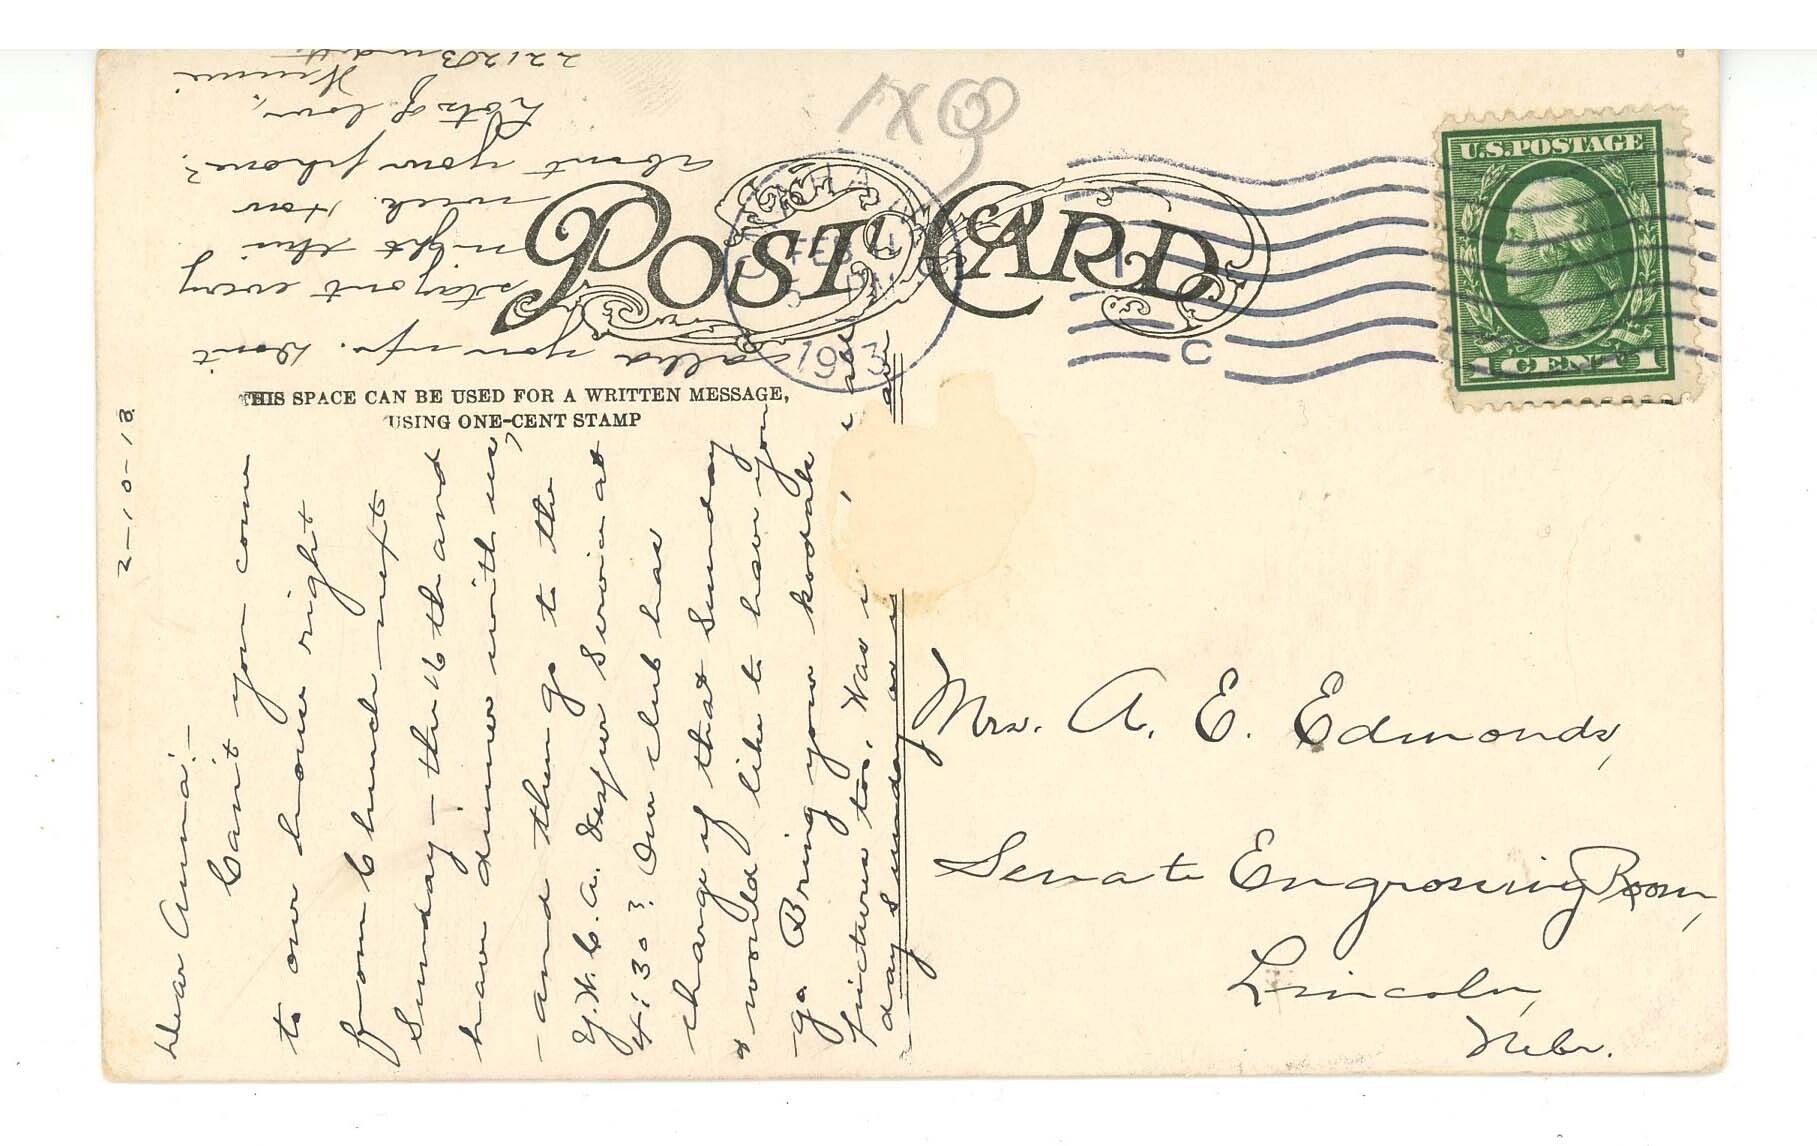 POST CARD
THIS SPACE CAN BE USED FOR A WRITTEN MESSAGE,
USING ONE-CENT STAMP
U.S. POSTAGE
1 CENT 1
FEB 11
1913
C
1X
2-10-13
Dear Anna:-
Can't you come
to our house right
from Church next
Sunday - the 16th and
have dinner with us,
- and then go to the
Y.W.C.A. Vesper Service at
4:30? Our club has
charge of that Sunday
& would like to have you
go. Bring your kodak
pictures to. Was
day Sunday as
called you up. Don't
stay out every
night this
week. How
about your phone?
Lots of love,
Minnie
2212 Burdette
Mrs. A. E. Edmonds,
Senate Engrossing Room,
Lincoln,
Nebr.